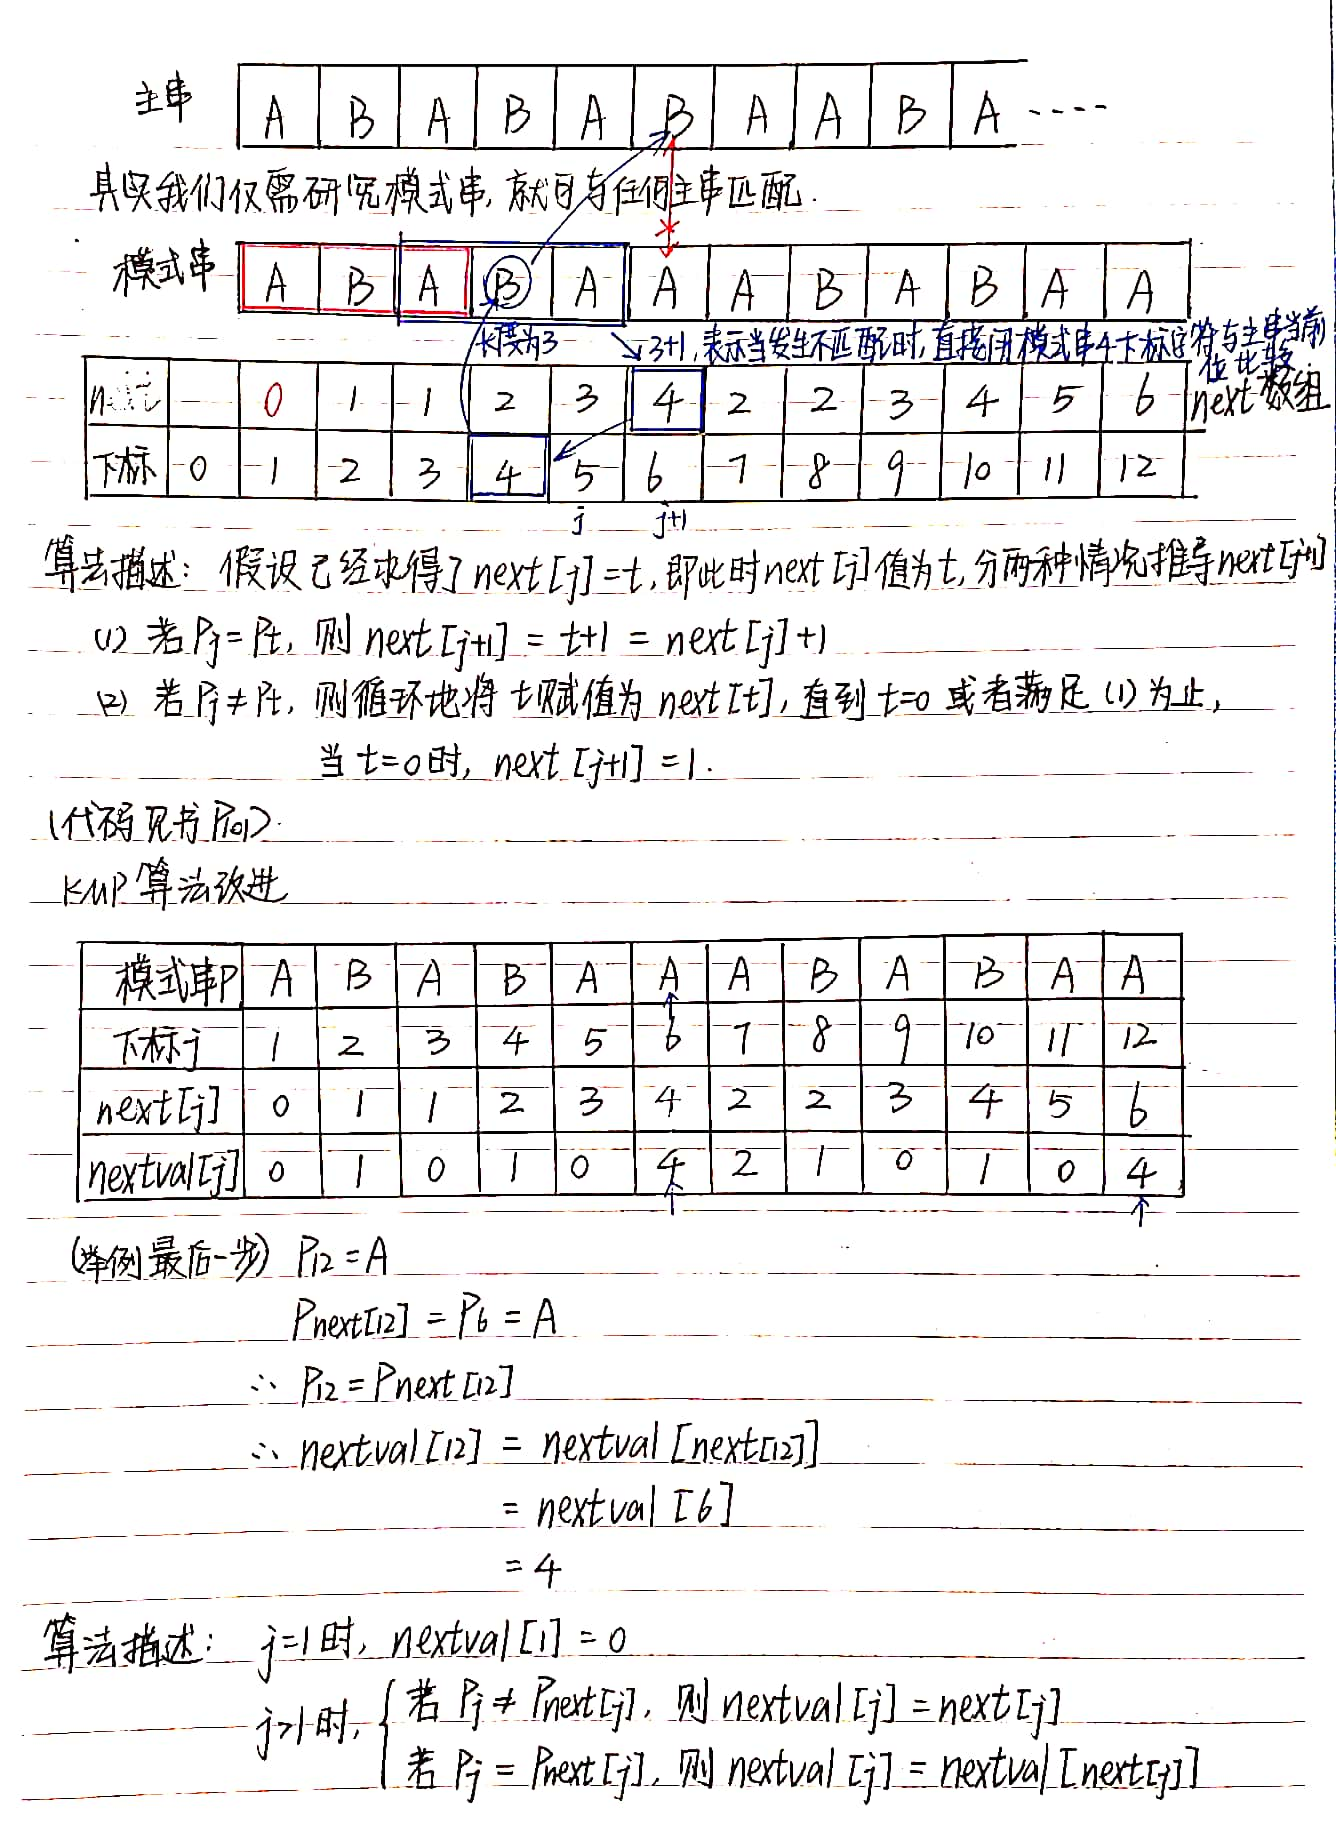 主串 A B A B A B A A B A ----
其实我们仅需研究模式串, 就可与任何主串匹配.
模式串 A B A B A A A B A B A A
长度为3 3+1, 表示当发生不匹配时, 直接用模式串4下标字符与主串当前位比较
0 1 1 2 3 4 2 2 3 4 5 6 next数组
下标 0 1 2 3 4 5 6 7 8 9 10 11 12
j j+1
算法描述: 假设已经求得了next[j]=t, 即此时next[j]值为t, 分两种情况推导next[j+1]
(1) 若Pj=Pt, 则 next[j+1] = t+1 = next[j]+1
(2) 若Pj≠Pt, 则循环地将 t赋值为 next[t], 直到 t=0 或者满足 (1) 为止,
当 t=0时, next[j+1]=1.
(代码见书P101).
KMP算法改进
模式串P A B A B A A A B A B A A
下标j 1 2 3 4 5 6 7 8 9 10 11 12
next[j] 0 1 1 2 3 4 2 2 3 4 5 6
nextval[j] 0 1 0 1 0 4 2 1 0 1 0 4
(举例最后一步) P12=A
Pnext[12] = P6 = A
∴ P12=Pnext[12]
∴ nextval[12] = nextval[next[12]]
= nextval[6]
= 4
算法描述: j=1时, nextval[1]=0
j>1时, { 若 Pj ≠ Pnext[j], 则 nextval[j]=next[j]
若 Pj = Pnext[j], 则 nextval[j] = nextval[next[j]]